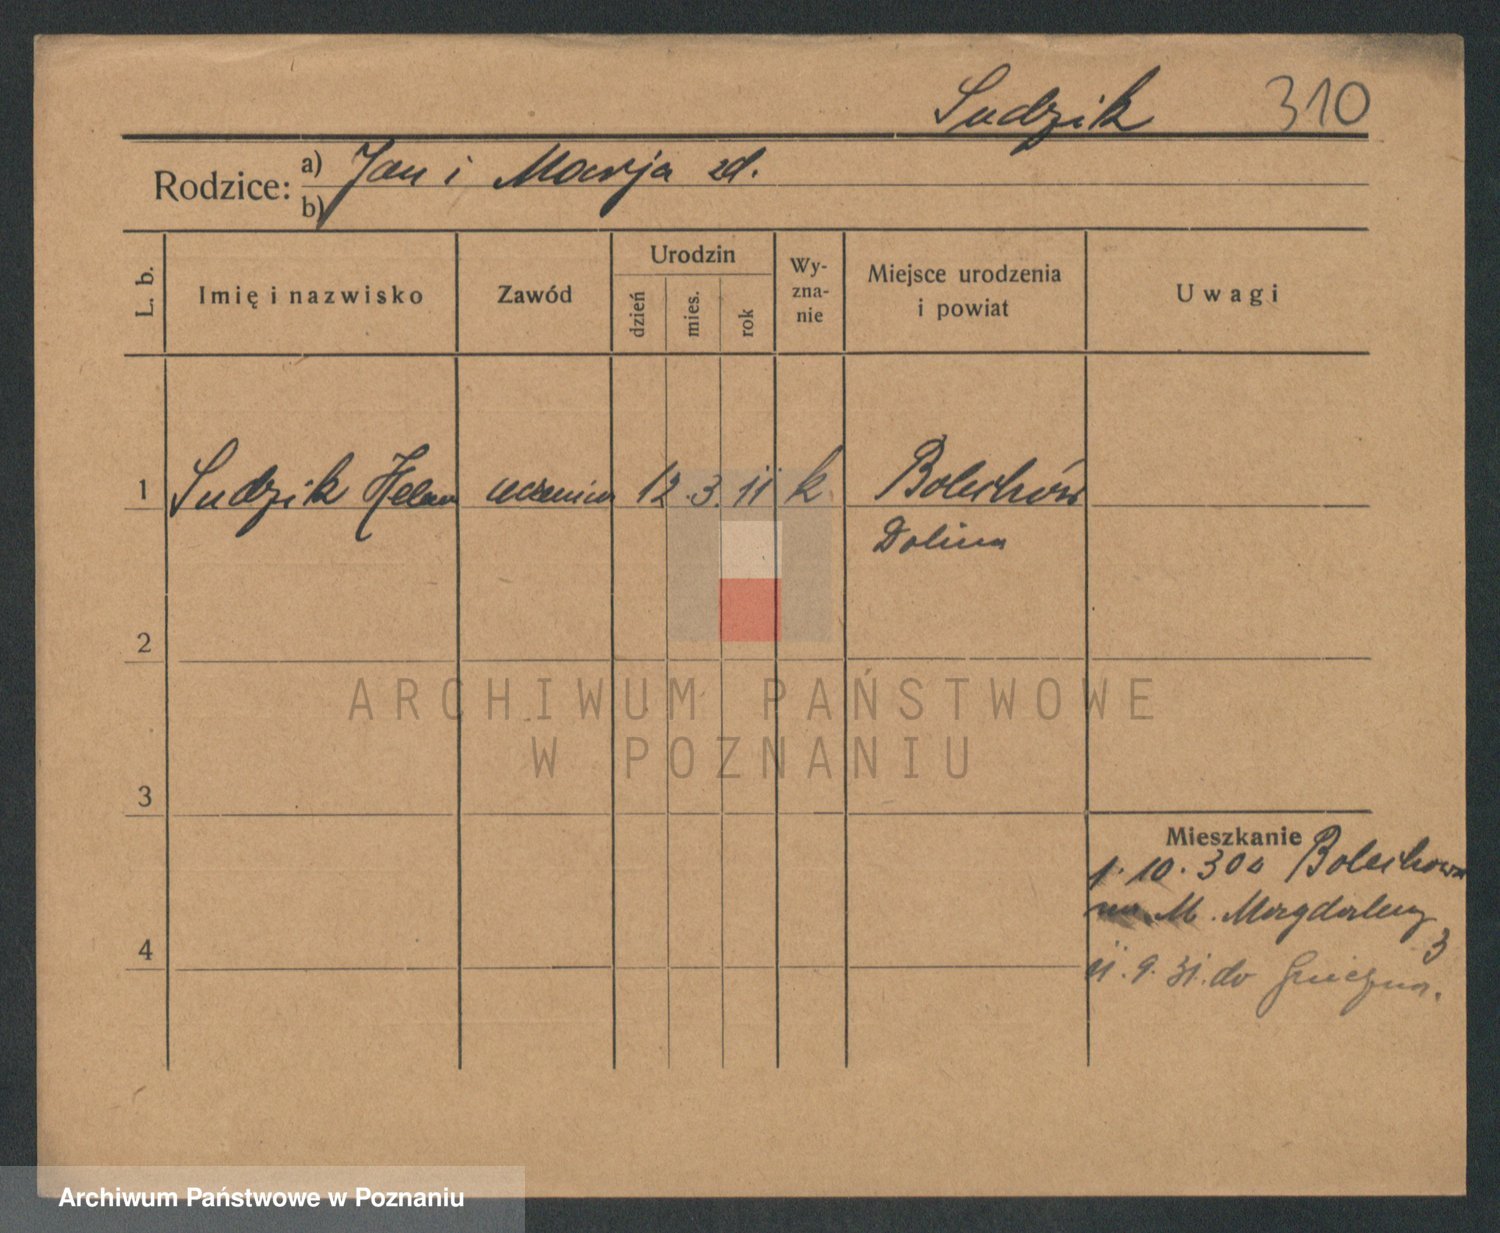 Sudzik 310
Rodzice: a) Jan i Marja zd.
b)
L. b.
Imię i nazwisko
Zawód
Urodzin
dzień
mies.
rok
Wy-
zna-
nie
Miejsce urodzenia
i powiat
Uwagi
1 Sudzik Helena uczenica 12 3 11 k Bolechów
Dolina
2
3
4
Mieszkanie
1.10.30 Bolechowa
M. Magdaleny
3
11.9.31. do Gniezna.
ARCHIWUM PAŃSTWOWE
W POZNANIU
Archiwum Państwowe w Poznaniu